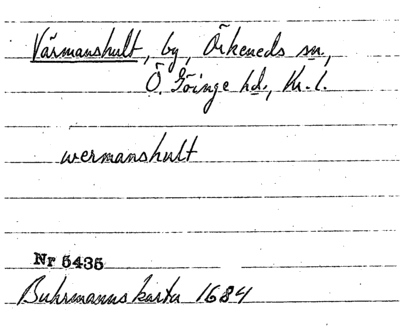 Värmanshult, by, Örkeneds sn,
Ö. Göinge hd., Kr. l.
wermanshult
Nr 5435
Buhrmanns karta 1684